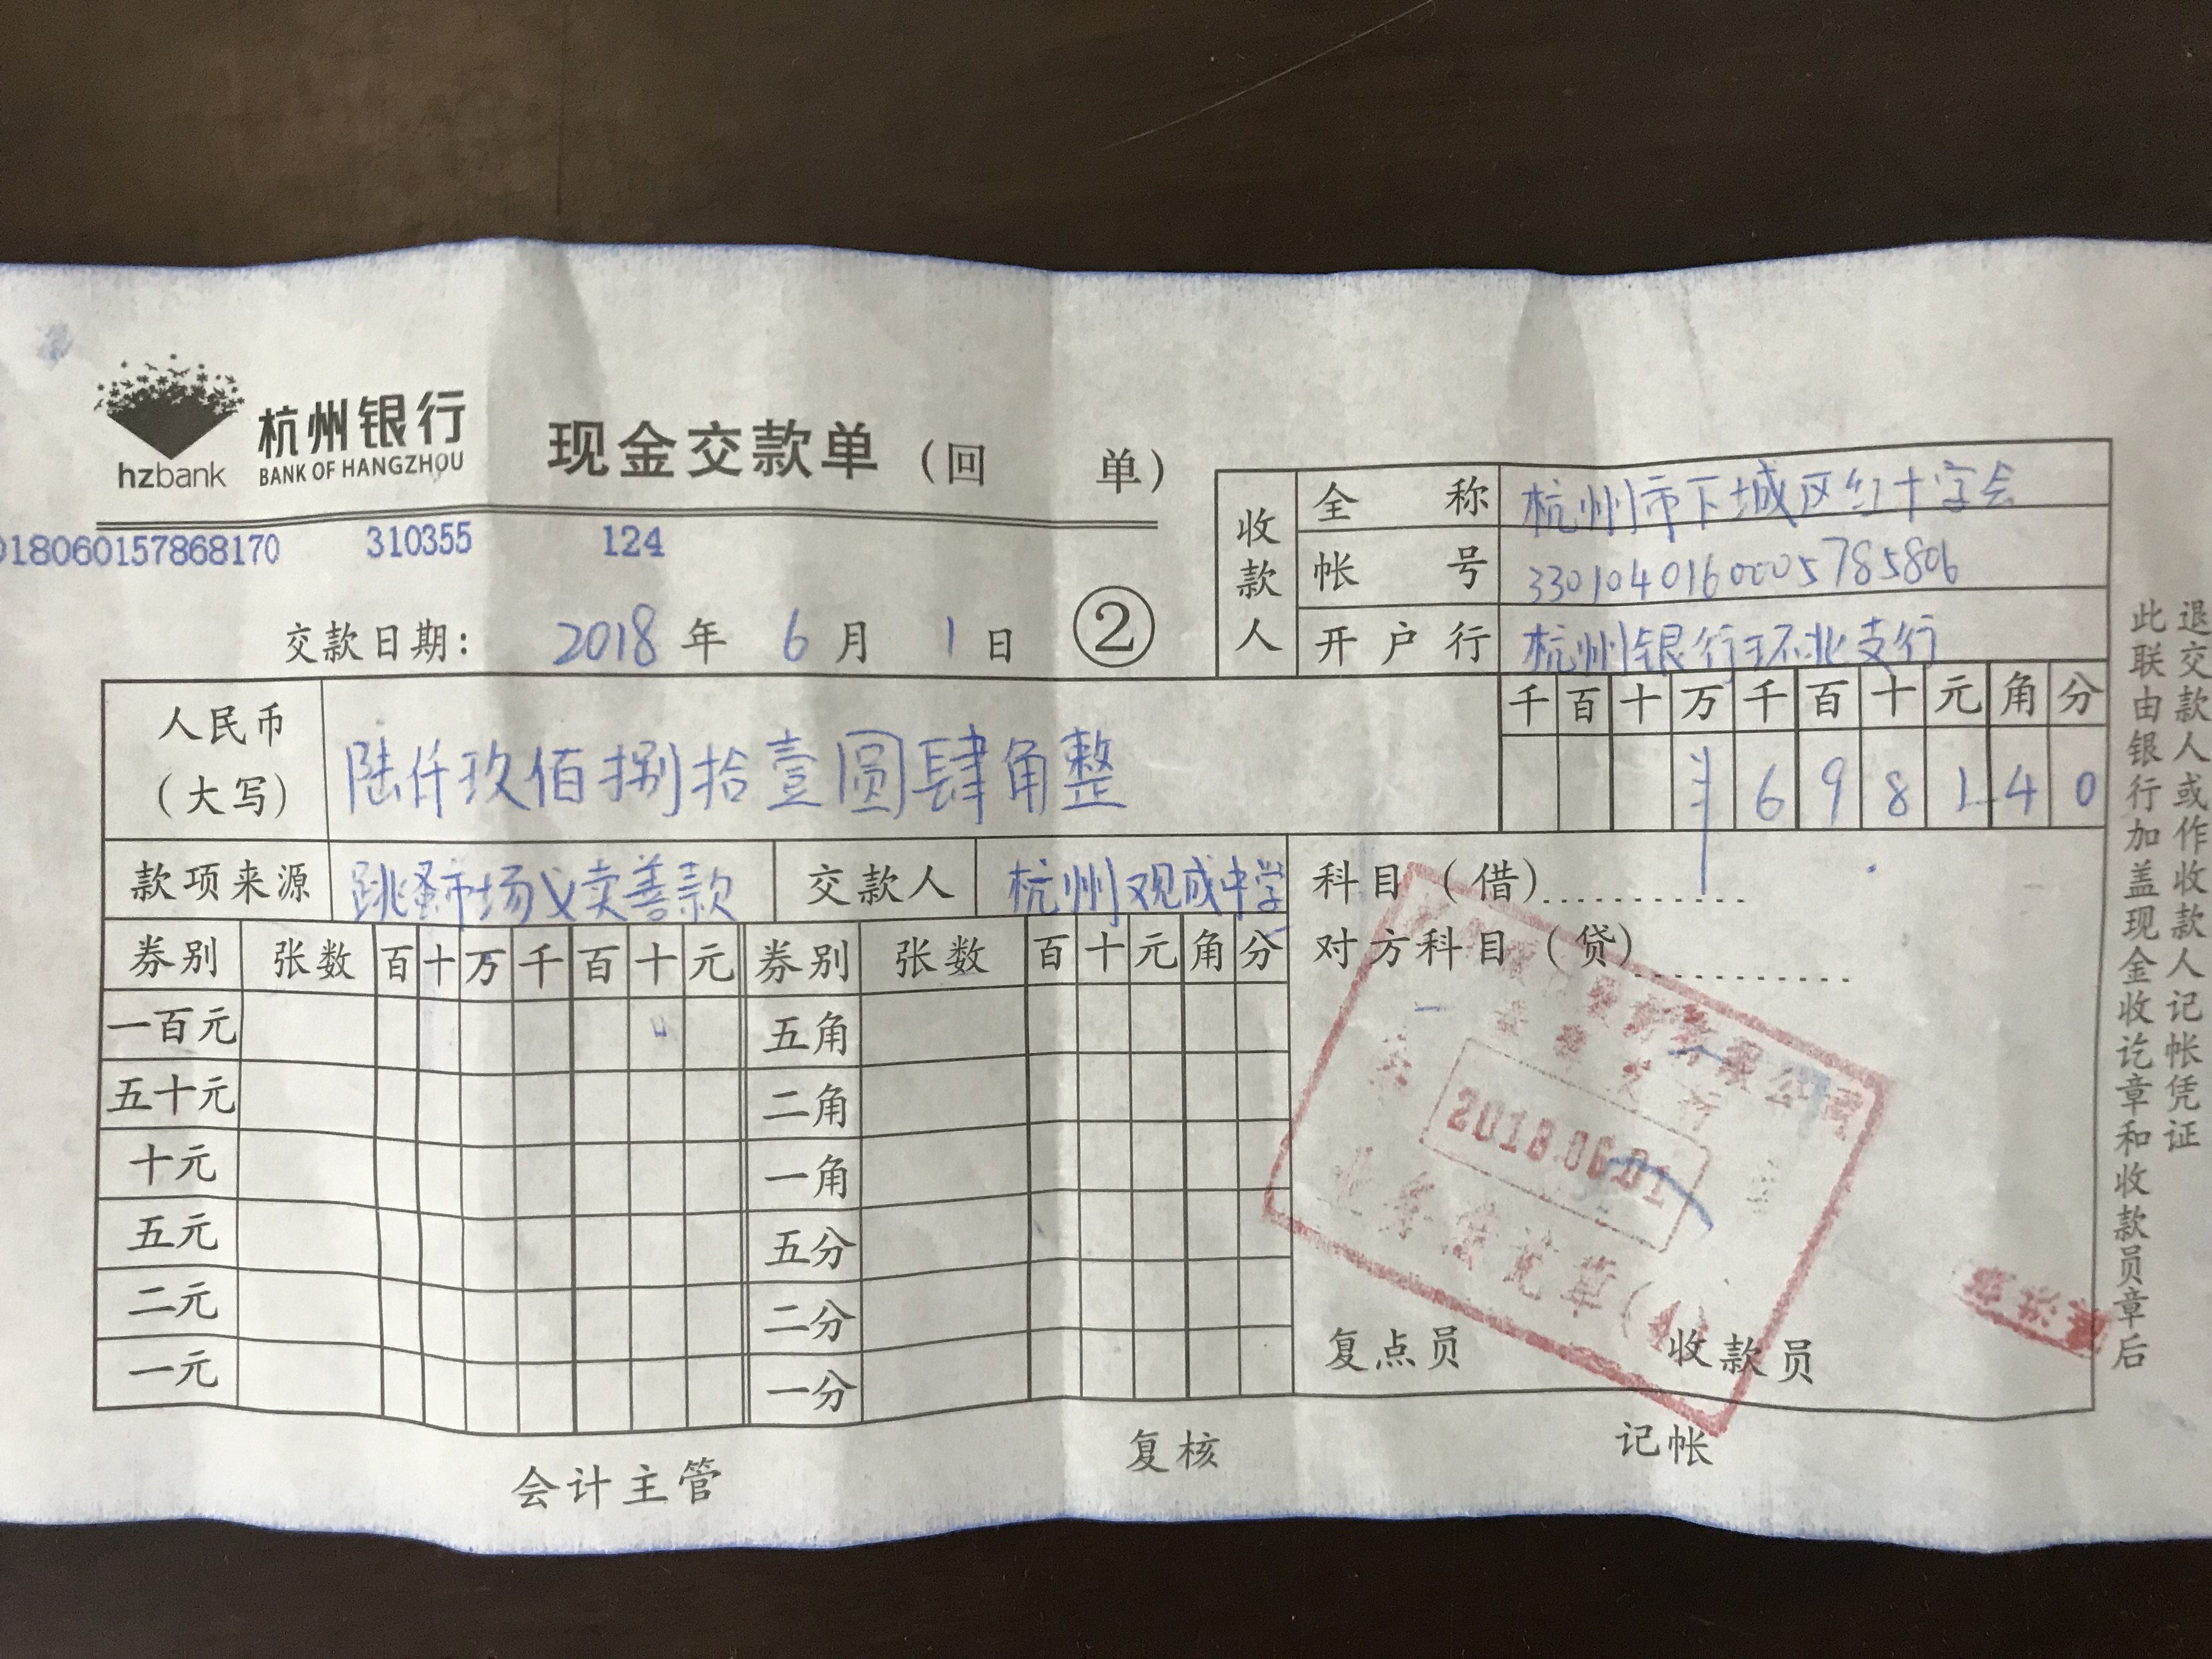 杭州银行
hzbank
BANK OF HANGZHOU
现金交款单（回 单）
018060157868170 310355 124
交款日期： 2018 年 6 月 1 日 ②
收款人
全称 杭州市下城区红十字会
帐号 3301040160005785806
开户行 杭州银行环北支行
人民币（大写） 陆仟玖佰捌拾壹圆肆角整
千 百 十 万 千 百 十 元 角 分
¥ 6 9 8 1 4 0
款项来源 跳蚤市场义卖善款 交款人 杭州观成中学
科目（借）
对方科目（贷）
券别 张数 百 十 万 千 百 十 元 券别 张数 百 十 元 角 分
一百元 五角
五十元 二角
十元 一角
五元 五分
二元 二分
一元 一分
有限公司
2018.06.01
业务 讫章(4)
复点员 收款员
会计主管 复核 记帐
此联由银行加盖现金收讫章和收款员章后
退交款人或作收款人记帐凭证